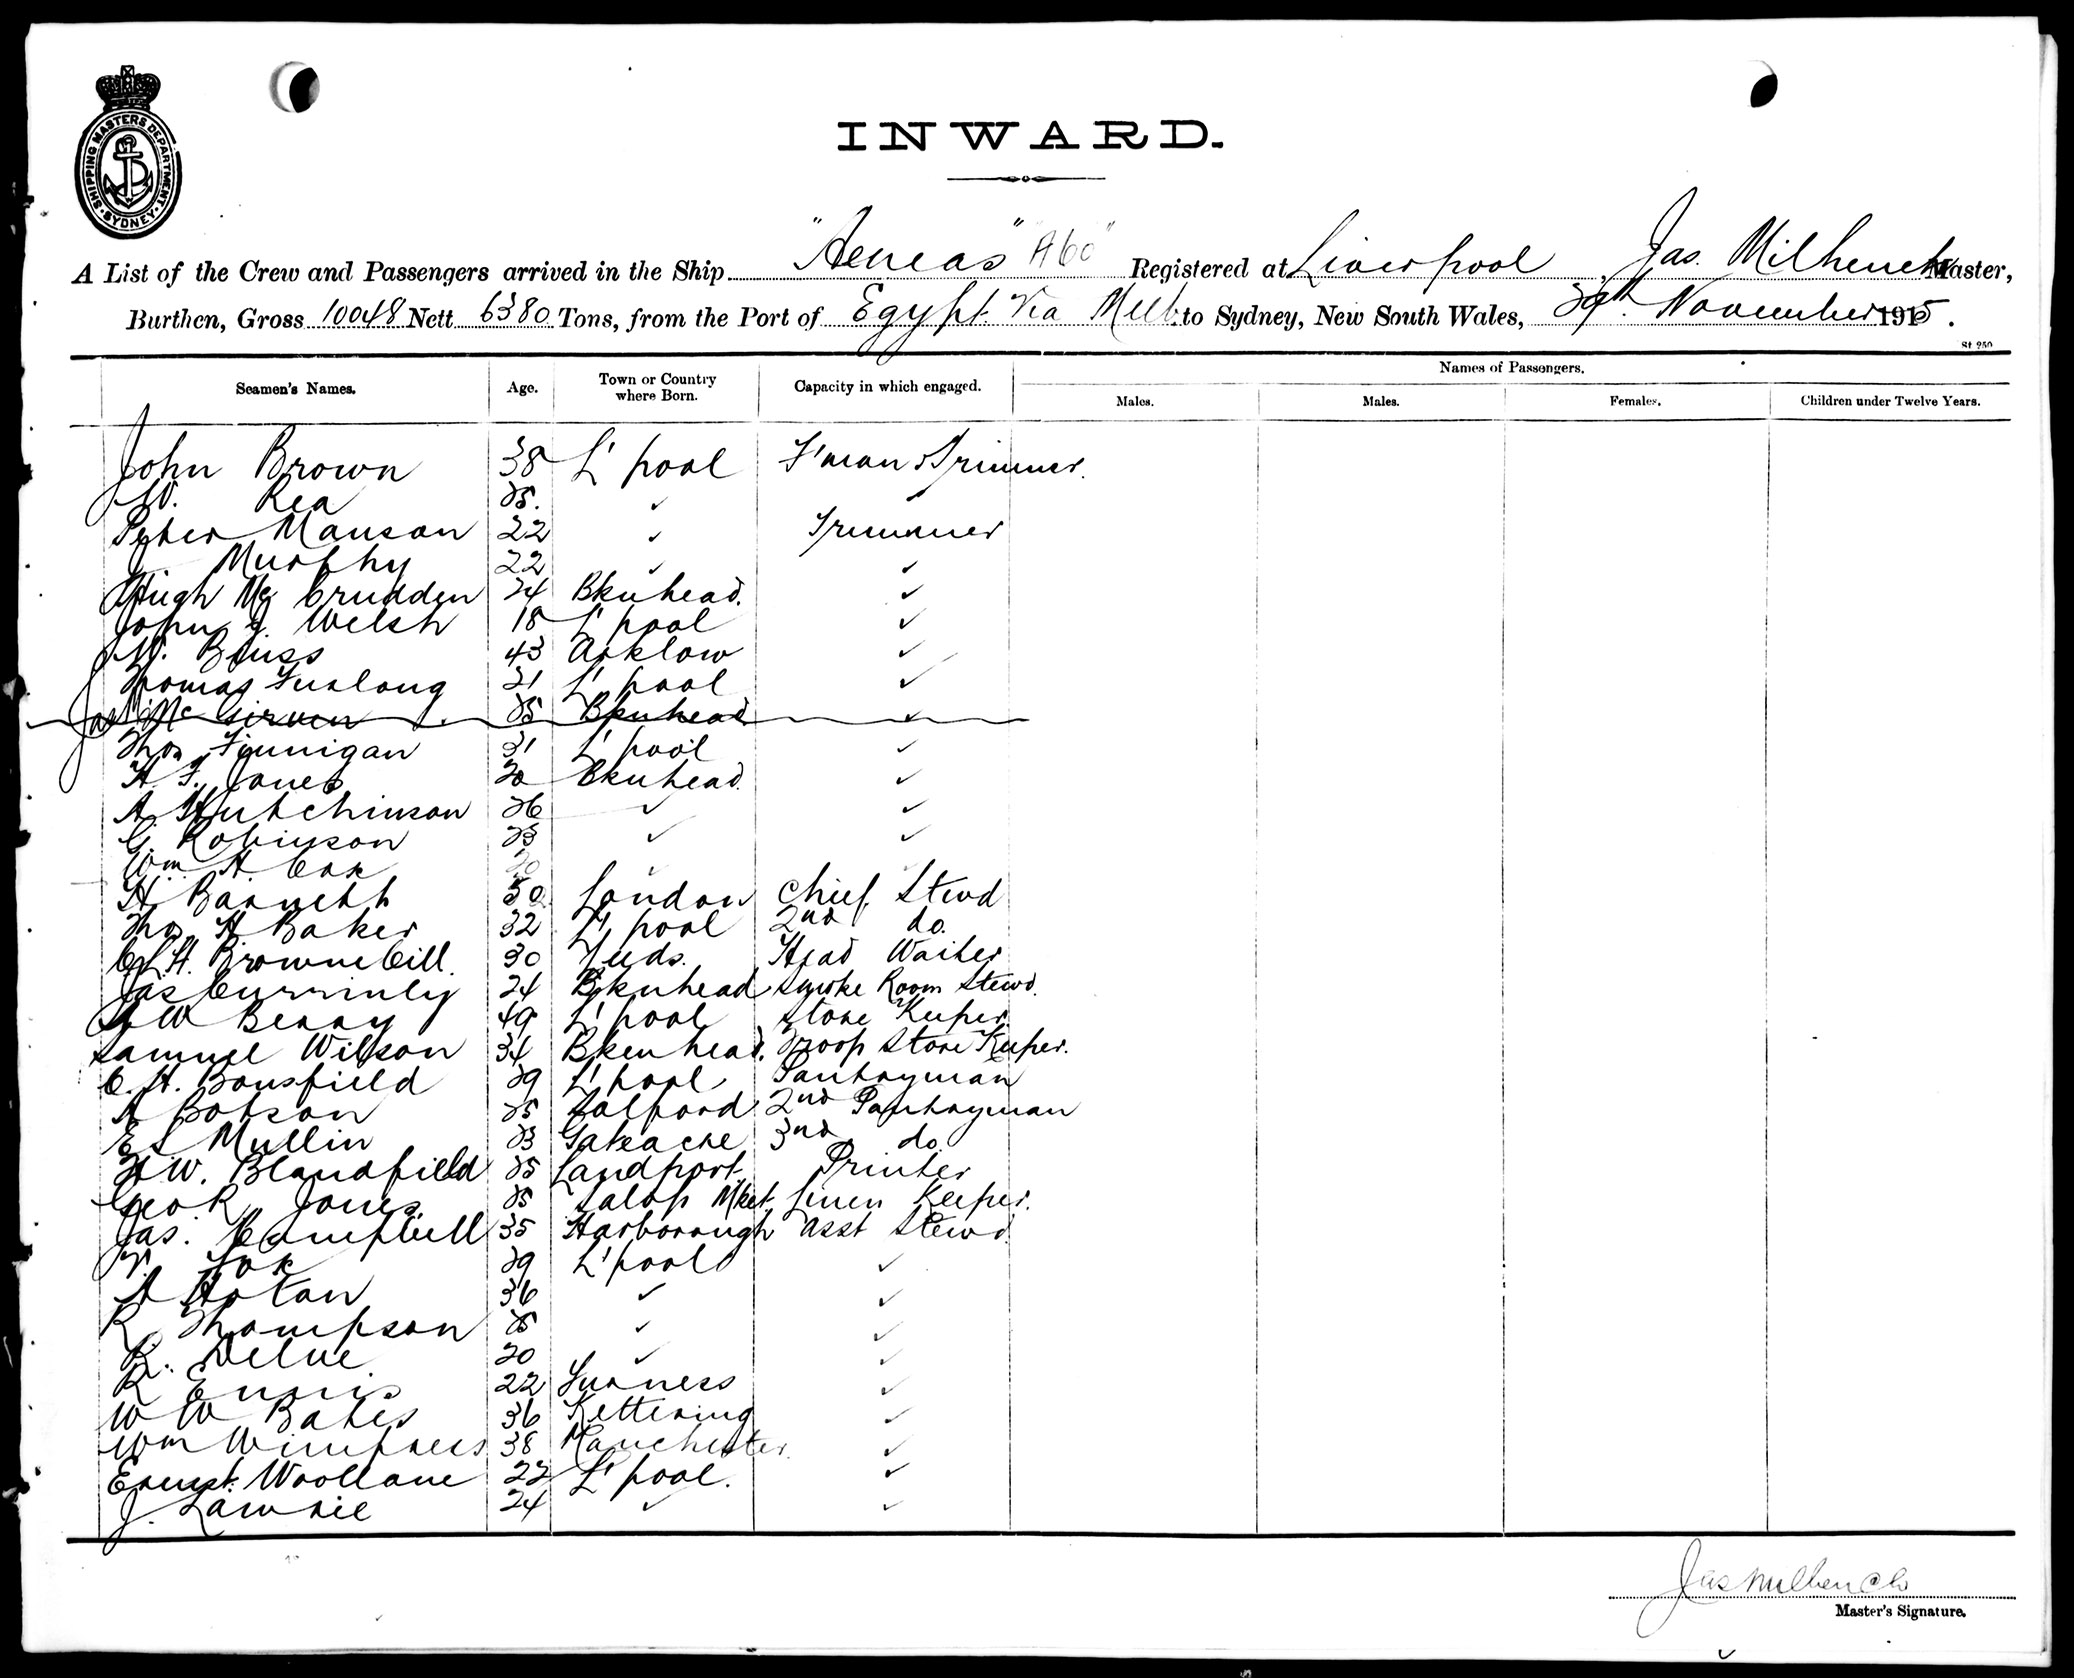 SHIPPING MASTERS DEPARTMENT · SYDNEY ·
INWARD.
A List of the Crew and Passengers arrived in the Ship "Aeneas" "A60" Registered at Liverpool, Jas. Milhench Master,
Burthen, Gross 10048 Nett 6380 Tons, from the Port of Egypt. Via Melb. to Sydney, New South Wales, November 1915.
St 250
Seamen's Names. Age. Town or Country where Born. Capacity in which engaged. Names of Passengers.
Males. Males. Females. Children under Twelve Years.
John Brown 38 L'pool F'man & Trimmer.
W. Rea 25. ✓ ✓
Peter Manson 22 ✓ Trimmer
J. Murphy 22 ✓ ✓
Hugh Mc Crudden 24 Bkenhead. ✓
John J. Welsh 18 L'pool ✓
W. Bluss 43 Arklow ✓
Thomas Furlong 21 L'pool ✓
Jas Mc Girven 25 Bkenhead ✓
Thos Finnigan 31 L'pool ✓
H. F. Jones 20 Bkenhead. ✓
A. Hutchinson 26 ✓ ✓
G. Robinson 23 ✓ ✓
Wm. H. Cox 20 ✓
H. Barnett 50 London Chief Stewd
Thos. H Baker 32 L'pool 2nd do.
C. H. Brownbill. 30 Leeds. Head Waiter
Jas Currinly 24 Bkenhead Smoke Room Stewd.
W Berry 49 L'pool Store Keeper.
Samuel Wilson 34 Bkenhead. Troop Store Keeper.
C. H. Bousfield 29 L'pool Pantryman
A Botson 25 Salford 2nd Pantryman
E L Mullin 23 Gateacre 3rd do
W. Blandfield 25 Landport. Printer
Geo R Jones. 25 Salop Mket. Linen Keeper.
Jas. Campbell 35 Harborough Asst Stewd.
T. Fox 29 L'pool ✓
A Hotan 36 ✓ ✓
R. Thompson 25 ✓ ✓
R. Delve 20 ✓ ✓
R Ennis 22 Furness ✓
W W Bates 36 Kettering ✓
Wm Wimpress 38 Manchester. ✓
Ernest Woollane 22 L'pool. ✓
J. Lawrie 24 ✓ ✓
Jas Milhench
Master's Signature.